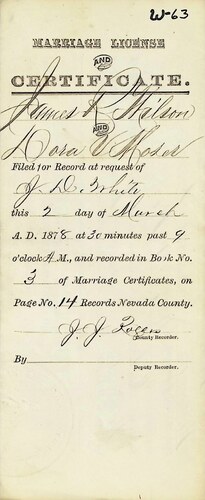 W-63
MARRIAGE LICENSE
AND
CERTIFICATE.
James R Wilson
AND
Dora E Moser
Filed for Record at request of
J D White
this 2 day of March
A. D. 1878 at 30 minutes past 9
o'clock A M., and recorded in Book No.
3 of Marriage Certificates, on
Page No. 14 Records Nevada County.
J. J.
County Recorder.
By
Deputy Recorder.